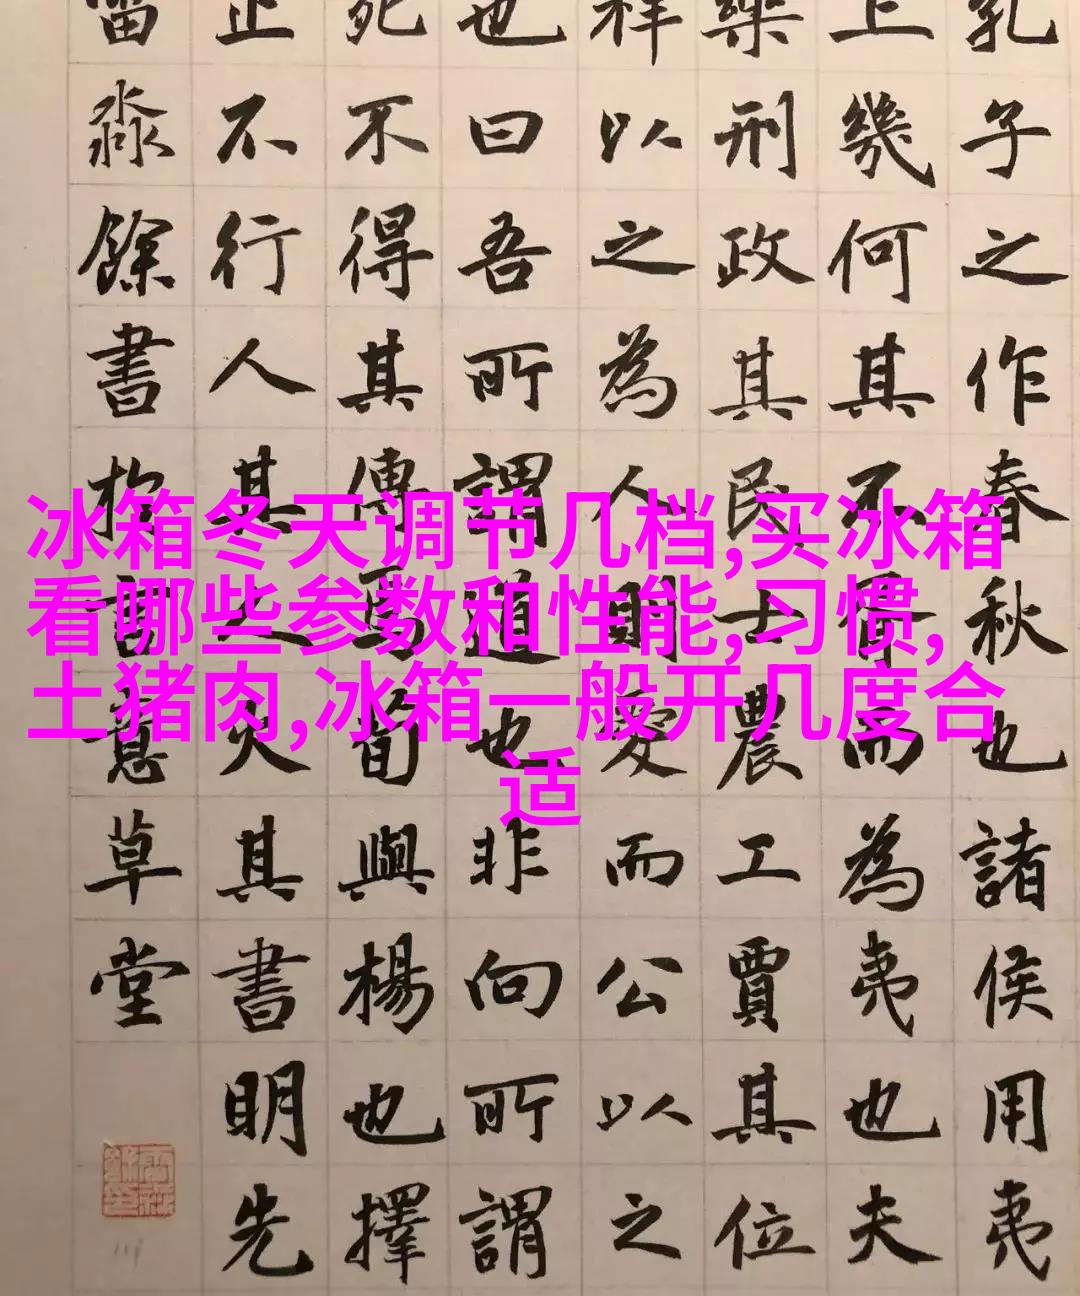 冰箱冬天调节几档,买冰箱
看哪些参数和性能,习惯,
土猪肉,冰箱一般开几度合
适
孔子之作春秋也諸侯用夷
上幾何其不胥而為夷也夫
樂刑政其民士農工賈其位
祥以之為人則愛而公以之
也曰吾所謂道也非向所謂
死不得其傳焉荀與楊也擇
止不行人其人火其書明先
淼餘書意草堂